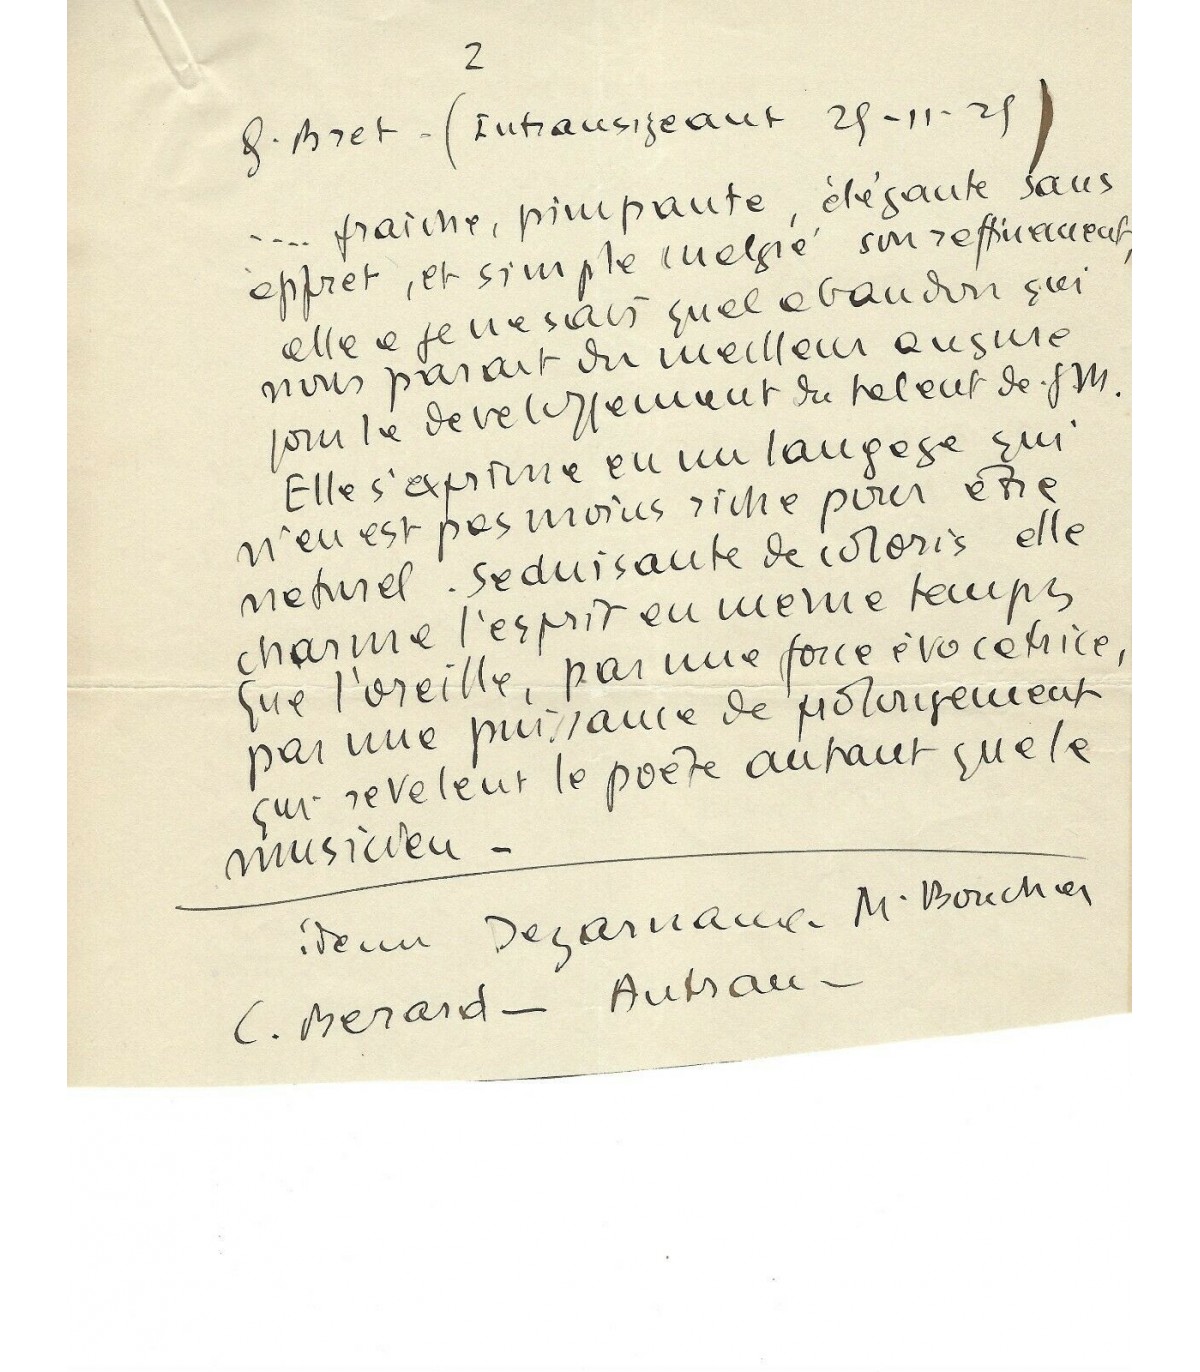 2
G. Bret - (Intransigeant 25-11-25)
.... fraiche, pimpante, élégante sans
appret, et simple malgré son raffinement,
elle a je ne sais quel abandon qui
nous parait du meilleur augure
pour le developpement du talent de G.M.
Elle s'exprime en un langage qui
n'en est pas moins riche pour être
naturel. Seduisante de coloris elle
charme l'esprit en meme temps
que l'oreille, par une force évocatrice,
par une puissance de prolongement
qui revelent le poète autant que le
musicien -
idem Dezarnaux. M. Boucher
C. Berard - Autran -